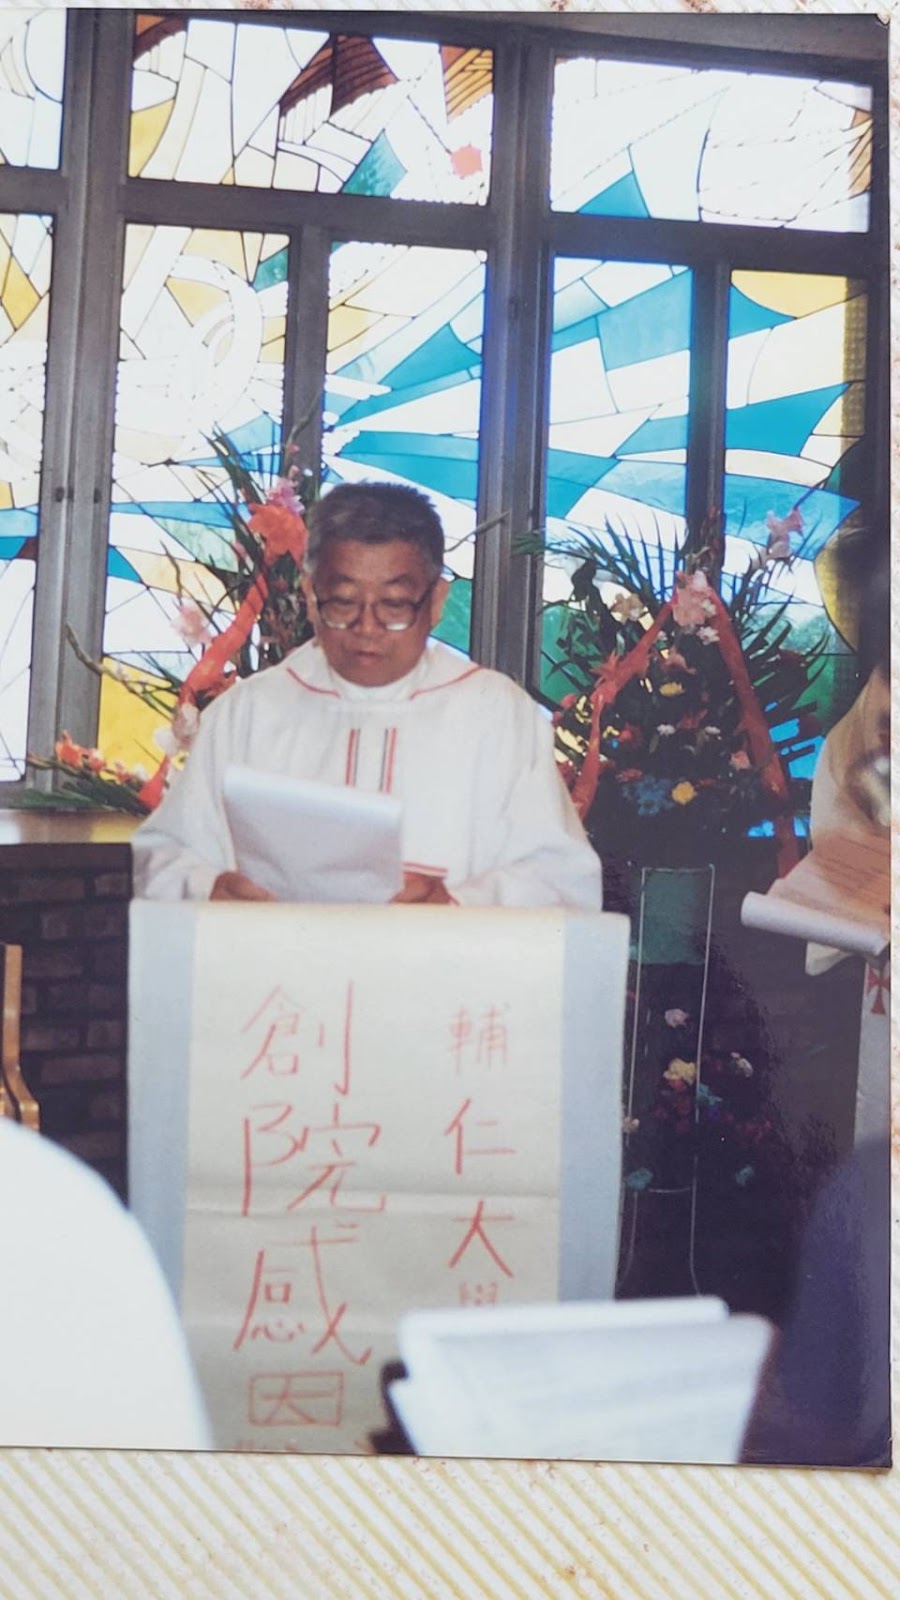 輔仁大學
創院感恩